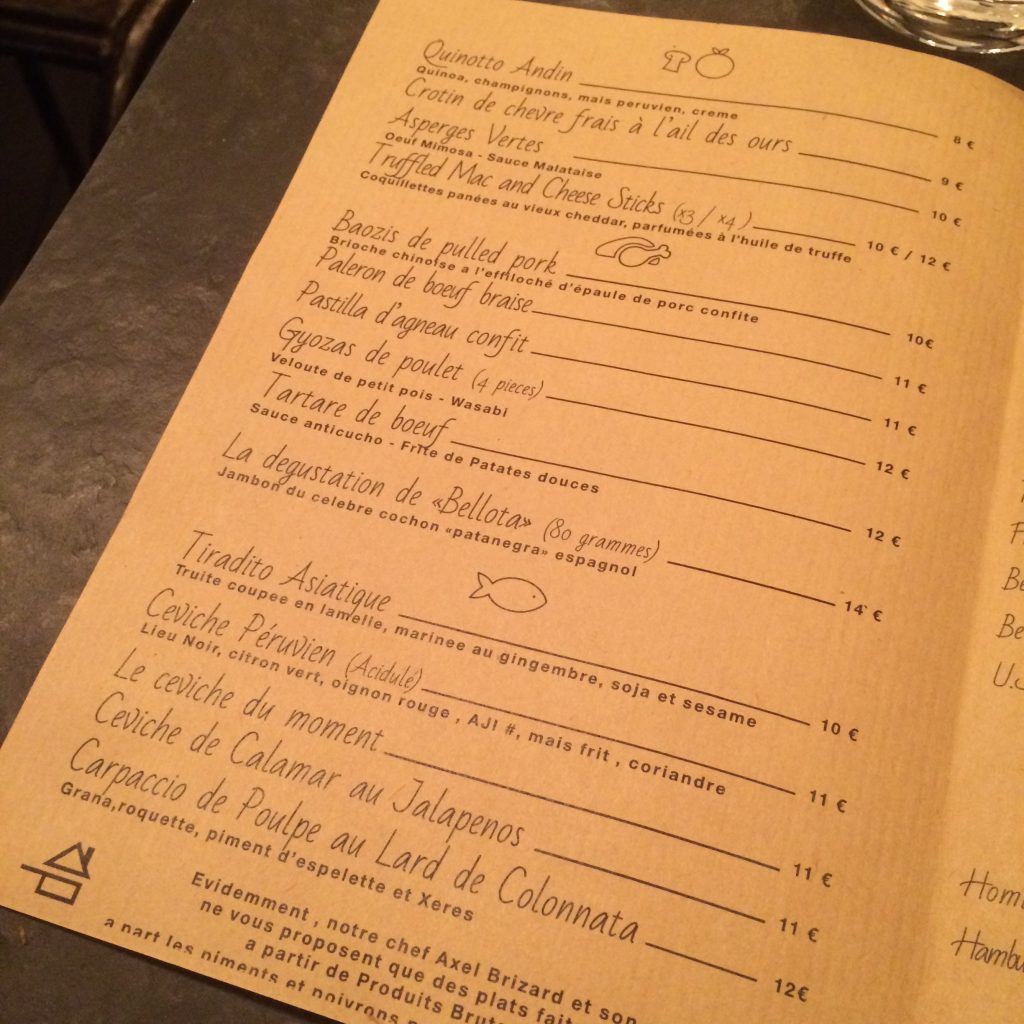 Quinotto Andin 8 €
Quinoa, champignons, mais peruvien, creme
Crotin de chevre frais à l'ail des ours 9 €
Asperges Vertes 10 €
Oeuf Mimosa - Sauce Malataise
Truffled Mac and Cheese Sticks (x3 / x4) 10 € / 12 €
Coquillettes panées au vieux cheddar, parfumées à l'huile de truffe
Baozis de pulled pork 10€
Brioche chinoise a l'effiloché d'épaule de porc confite
Paleron de boeuf braise 11 €
Pastilla d'agneau confit 11 €
Gyozas de poulet (4 pieces) 12 €
Veloute de petit pois - Wasabi
Tartare de boeuf 12 €
Sauce anticucho - Frite de Patates douces
La degustation de «Bellota» (80 grammes) 14 €
Jambon du celebre cochon «patanegra» espagnol
Tiradito Asiatique 10 €
Truite coupee en lamelle, marinee au gingembre, soja et sesame
Ceviche Péruvien (Acidulé) 11 €
Lieu Noir, citron vert, oignon rouge , AJI #, mais frit , coriandre
Le ceviche du moment 11 €
Ceviche de Calamar au Jalapenos 11 €
Carpaccio de Poulpe au Lard de Colonnata 12€
Grana,roquette, piment d'espelette et Xeres
Evidemment , notre chef Axel Brizard et son
ne vous proposent que des plats fait
a partir de Produits Brut
a part les piments et poivrons
Be
Be
U.S
Hom
Hambu